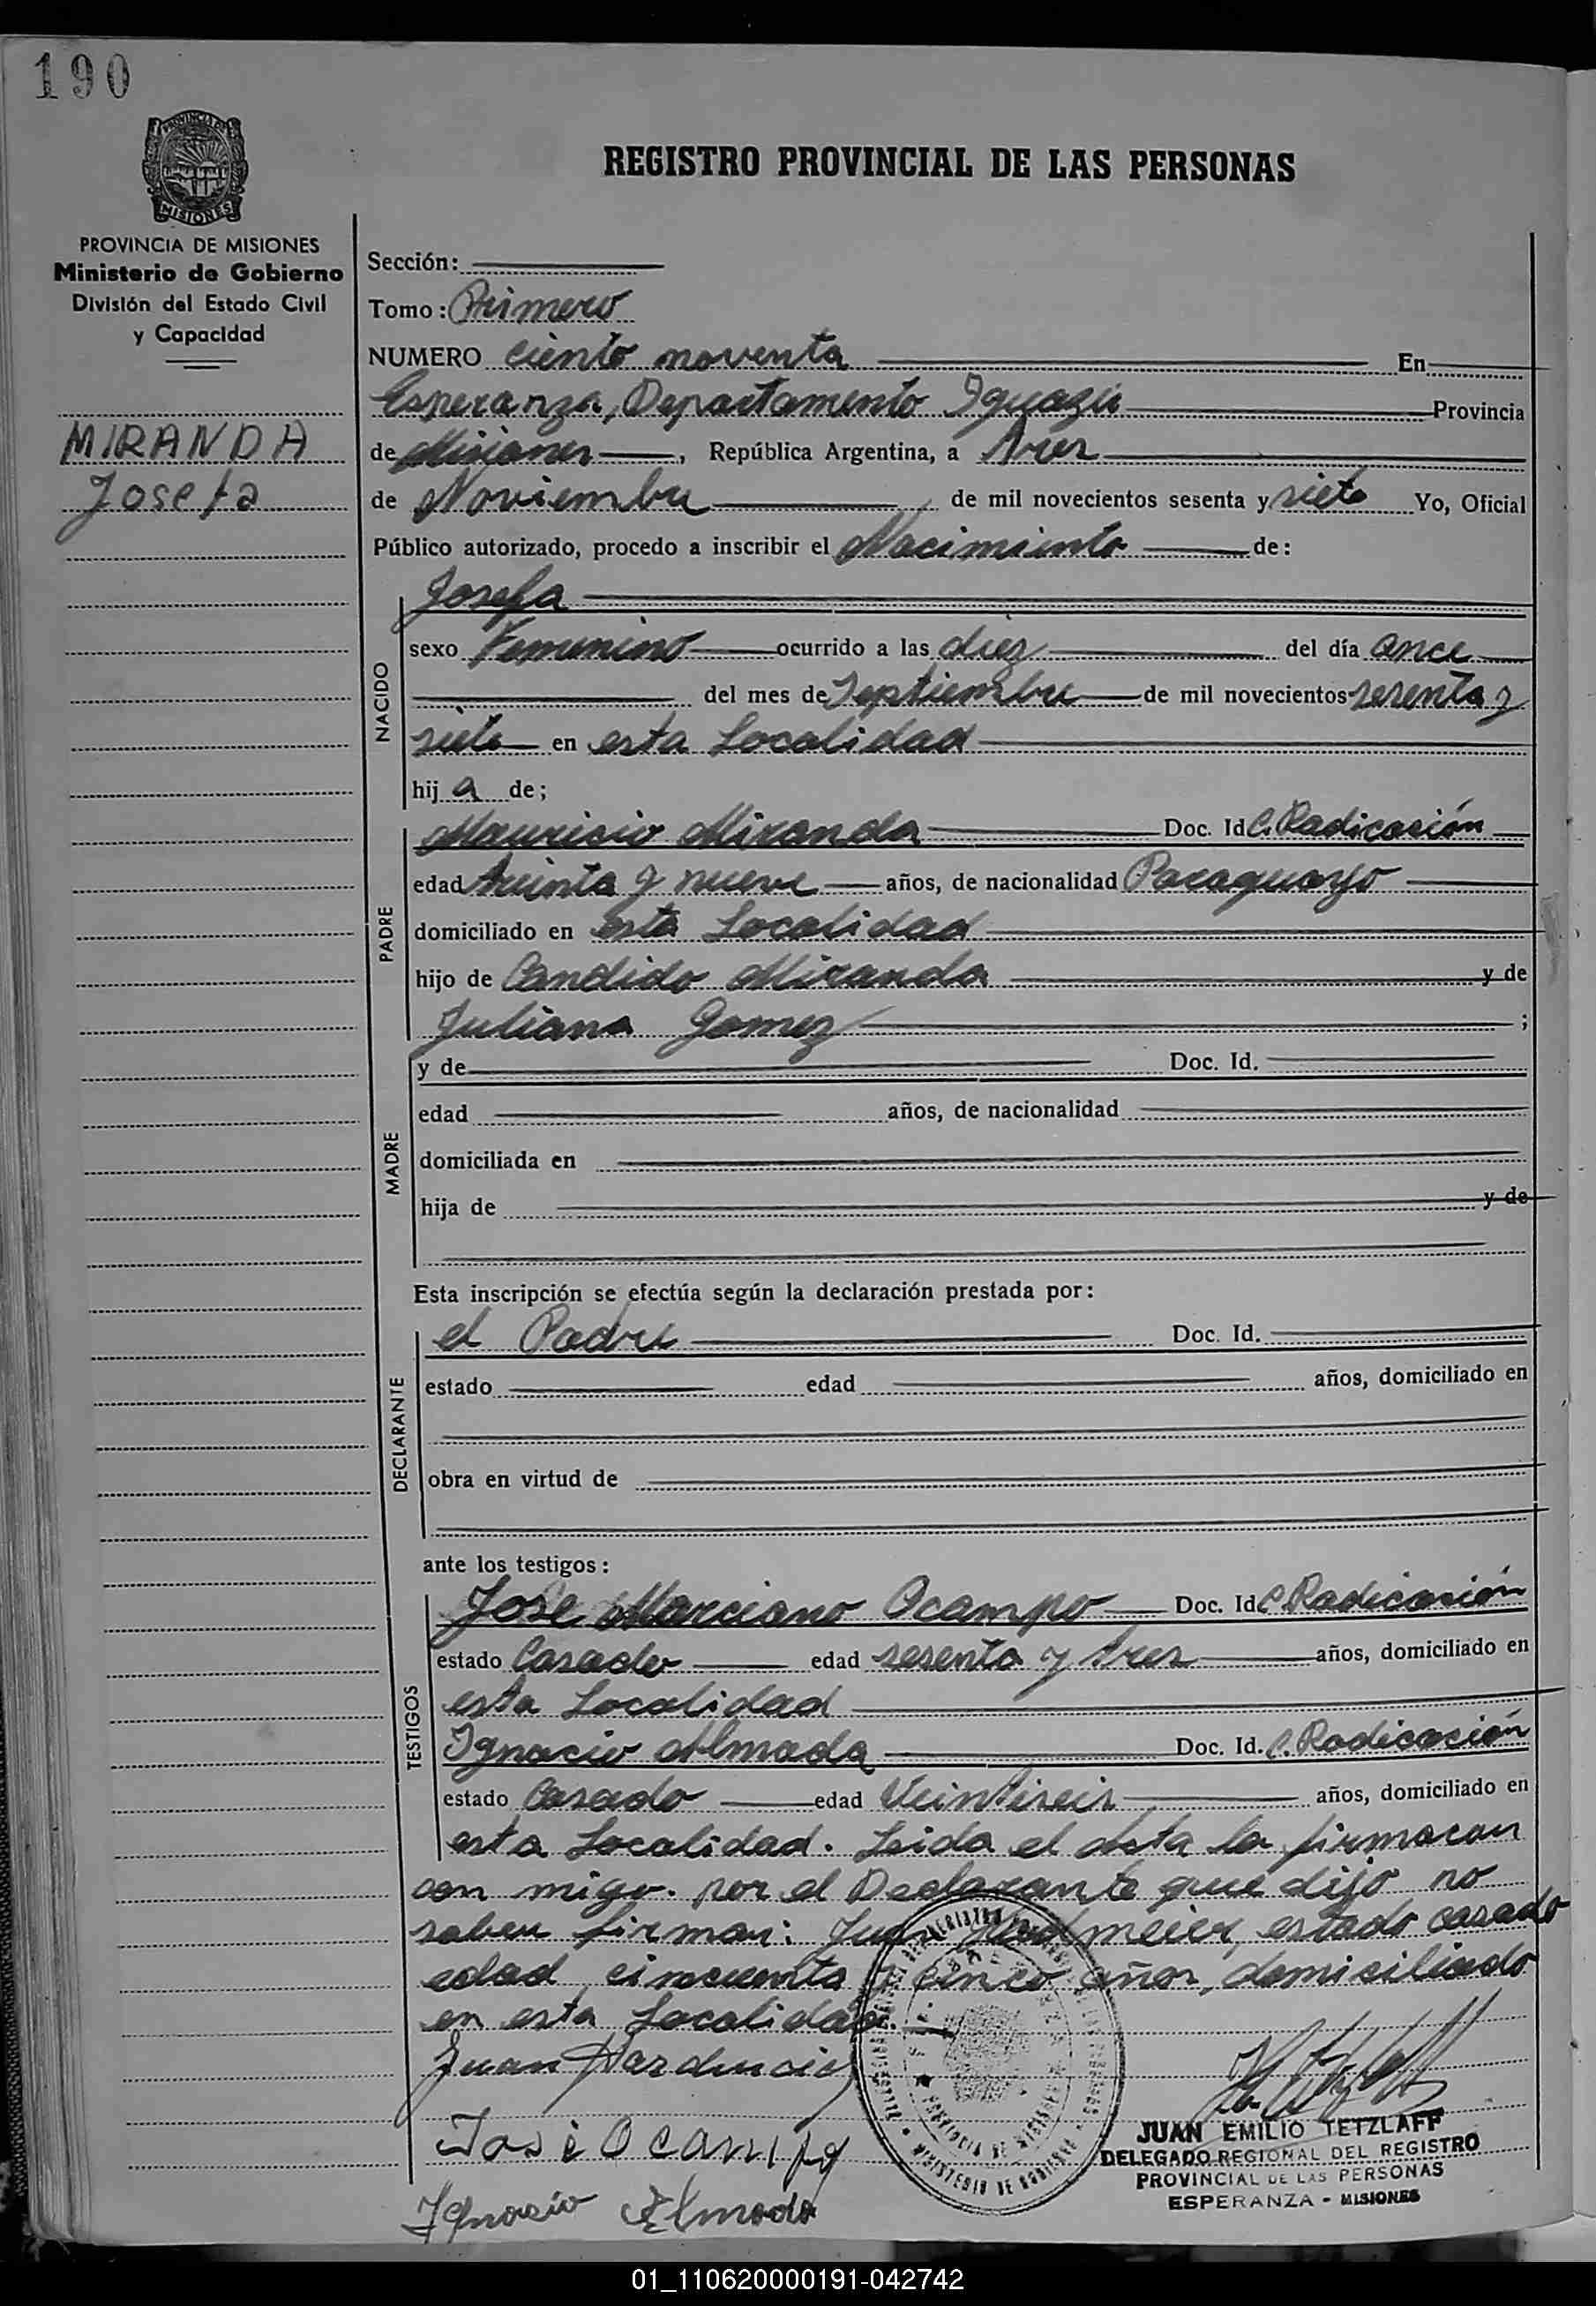 190
PROVINCIA DE MISIONES
REGISTRO PROVINCIAL DE LAS PERSONAS
PROVINCIA DE MISIONES
Ministerio de Gobierno
División del Estado Civil
y Capacidad
MIRANDA
Josefa
Sección:
Tomo: Primero
NUMERO ciento noventa En
Esperanza, Departamento Iguazú Provincia
de Misiones, República Argentina, a tres
de Noviembre de mil novecientos sesenta y siete Yo, Oficial
Público autorizado, procedo a inscribir el Nacimiento de:
NACIDO
Josefa
sexo Femenino ocurrido a las diez del día once
del mes de Septiembre de mil novecientos sesenta y
siete en esta Localidad
hij a de;
PADRE
Mauricio Miranda Doc. Id C. Radicación
edad treinta y nueve años, de nacionalidad Paraguayo
domiciliado en esta Localidad
hijo de Candido Miranda y de
Juliana Gomez ;
MADRE
y de Doc. Id.
edad años, de nacionalidad
domiciliada en
hija de y de
Esta inscripción se efectúa según la declaración prestada por:
DECLARANTE
el Padre Doc. Id.
estado edad años, domiciliado en
obra en virtud de
ante los testigos:
TESTIGOS
Jose Marciano Ocampo Doc. Id C Radicación
estado Casado edad sesenta y tres años, domiciliado en
esta Localidad
Ignacio Almada Doc. Id. C. Radicación
estado Casado edad Veintiseis años, domiciliado en
esta Localidad. Leida el Acta la firmaran
con migo. por el Declarante que dijo no
saber firmar: Juan estado casado
edad cincuenta y cinco años, domiciliado
en esta Localidad.
Juan
José Ocampo
Ignacio Almada
PROVINCIA DE MISIONES
MINISTERIO DE GOBIERNO
JUAN EMILIO TETZLAFF
DELEGADO REGIONAL DEL REGISTRO
PROVINCIAL DE LAS PERSONAS
ESPERANZA - MISIONES
01_110620000191-042742